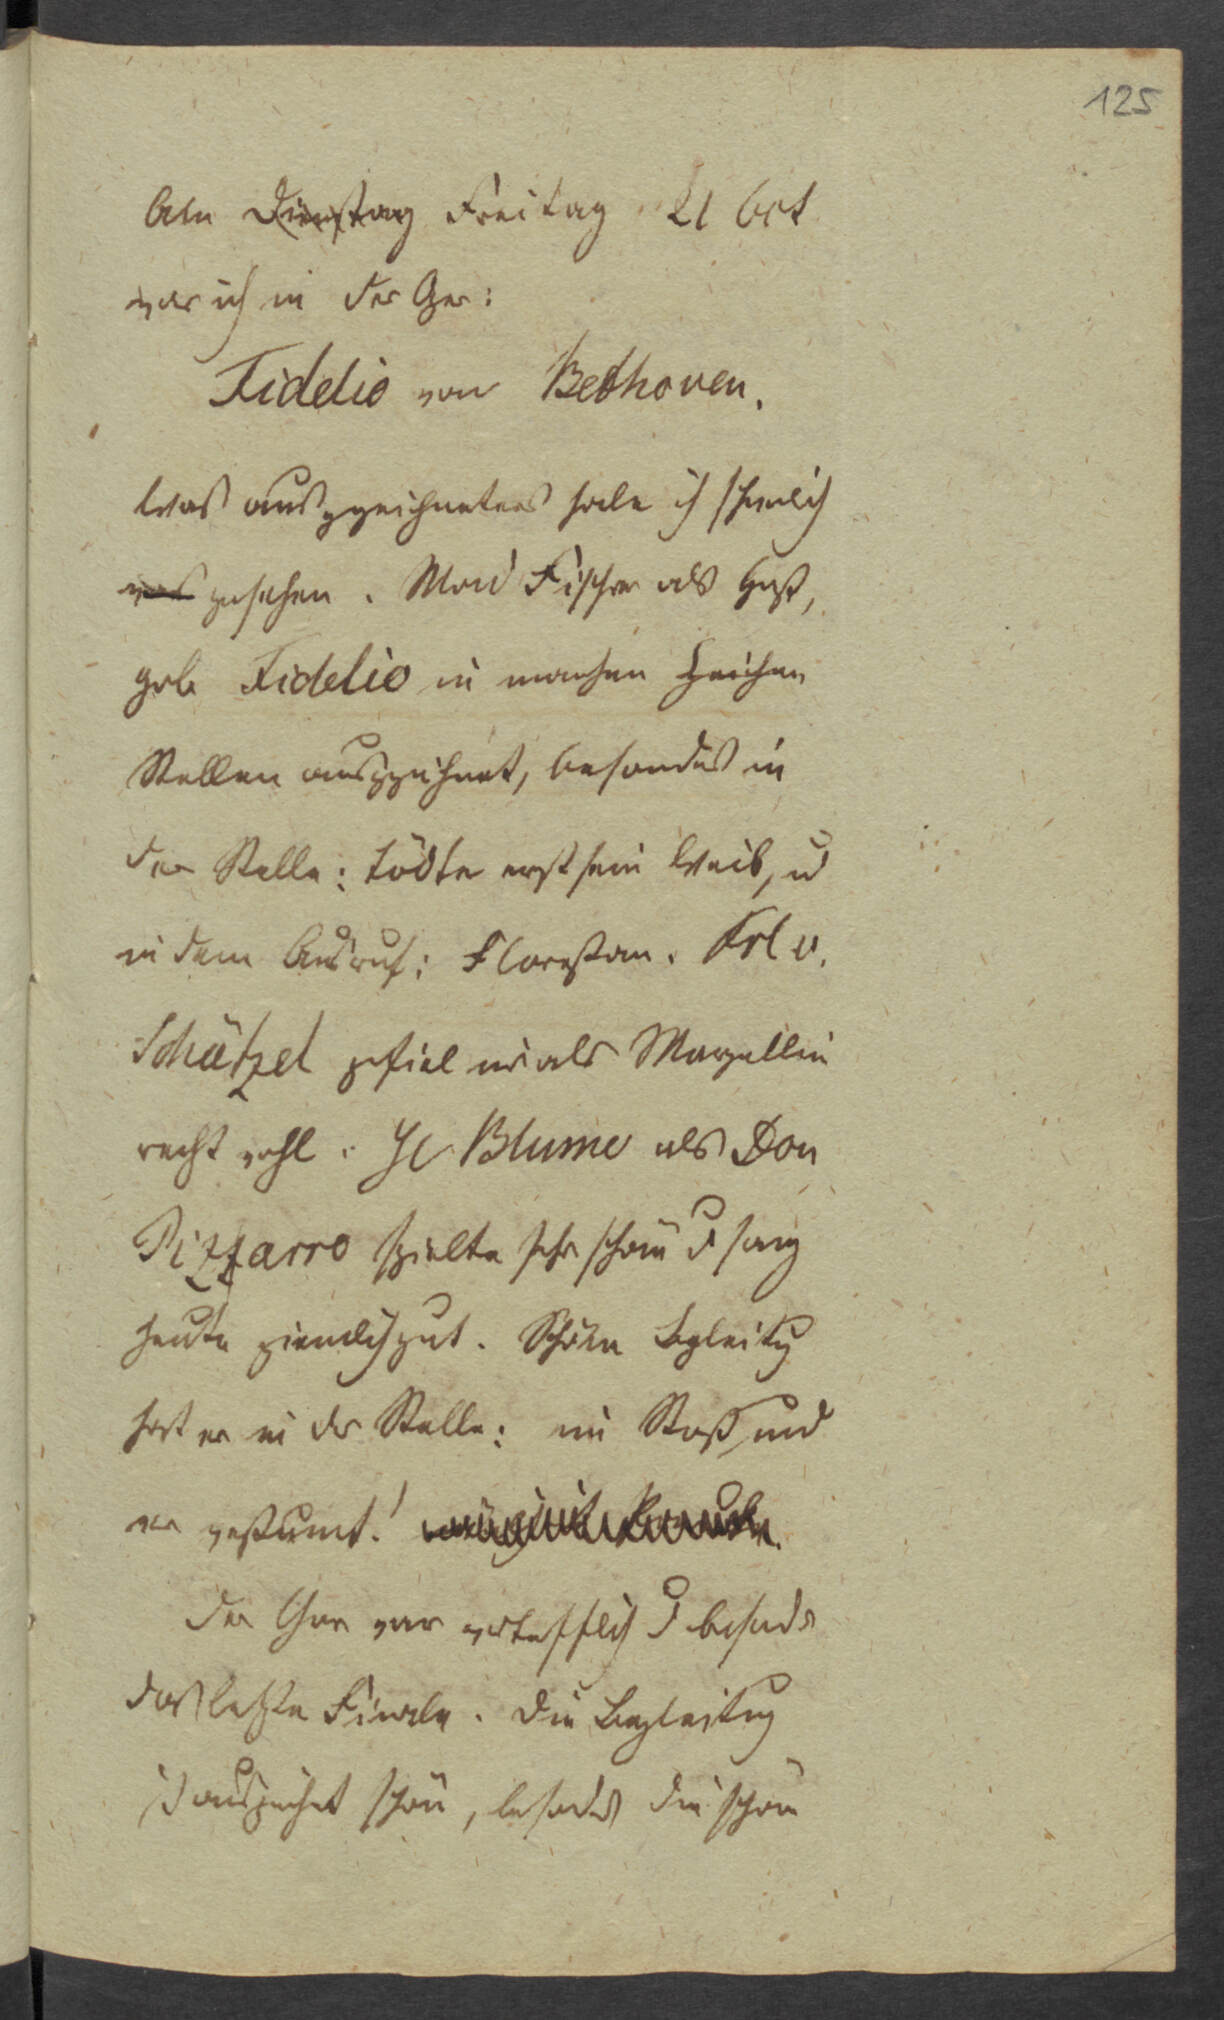 125
Am Dienstag Freitag 21 Oct
war ich in der Oper:
Fidelio von Bethoven.
Was ausgezeichneteres habe ich schwerlich
gesehen. Mad Fischer als Gast,
gab Fidelio in manchen
Stellen ausgezeichnet, besonders in
der Stelle: tödte erst sein Weib, u
in dem Ausruf: Florestan. Frl v.
Schätzel gefiel mir als Marzellin
recht wohl. H Blume als Don
Pizzarro spielte sehr schön u sang
heute ziemlich gut. Schöne Begleitg
hat er in der Stelle: ein Stoß und
er verstumt!
Der Chor war vortrefflich u besonders
das letzte Finale. Die Begleitug
ist ausgezeichnet schön, besonders die schöne